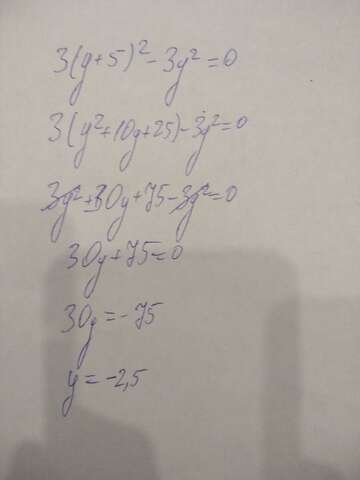 3(y+5)²-3y²=0
3(y²+10y+25)-3y²=0
3y²+30y+75-3y²=0
30y+75=0
30y=-75
y=-2,5